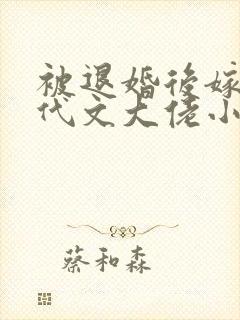 被退婚後嫁
代文大佬小
蔡和森